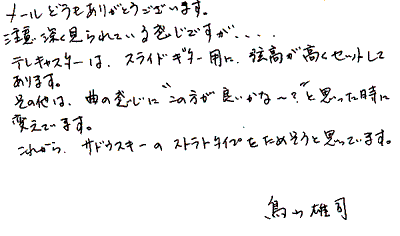 メールどうもありがとうございます。
注意深く見られている感じですが、・・・・
テレキャスターは、スライドギター用に、弦高が高くセットして
あります。
その他は、曲の感じに"この方が良いかな〜?"と思った時に
変えています。
これから、サドウスキーのストラトタイプをためそうと思っています。
鳥山雄司